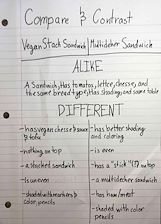 Compare & Contrast
Vegan Stach Sandwich | Multidecker Sandwich
ALIKE
A Sandwich, Has tomatos, lettce, cheese, and
the same bread type, Has shading and same table
DIFFERENT
- has vegan cheese & sauce
& tofu
- has better shading
and coloring
- nothing on top
- is even
- a stacked sandwich
- has a "stick" on top
- is uneven
- a multidecker sandwich
- shaded with markers &
color pencils
- has ham/meat
- shaded with color
pencils